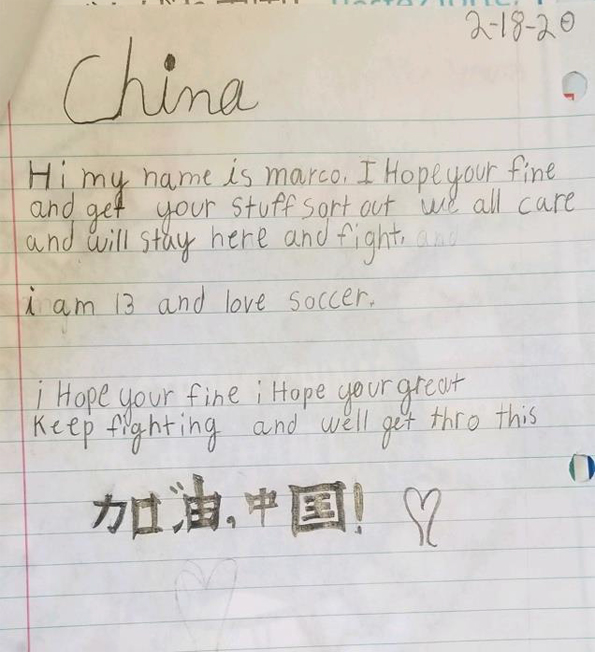 2-18-20
China
Hi my name is marco. I Hope your fine
and get your stuff sort out we all care
and will stay here and fight. and
i am 13 and love soccer.
i Hope your fine i Hope your great
Keep fighting and we'll get thro this
加油,中国!